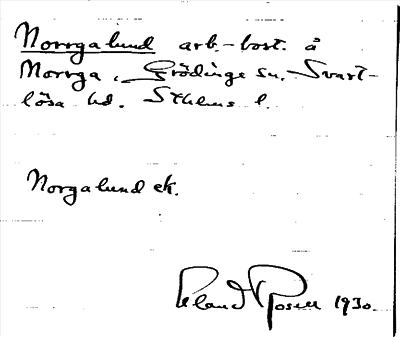 Norrgalund arb.-bost. å
Norrga, Grödinge sn. Svart-
lösa hd. Sthlms l.
Norgalund ek.
Roser 1930.